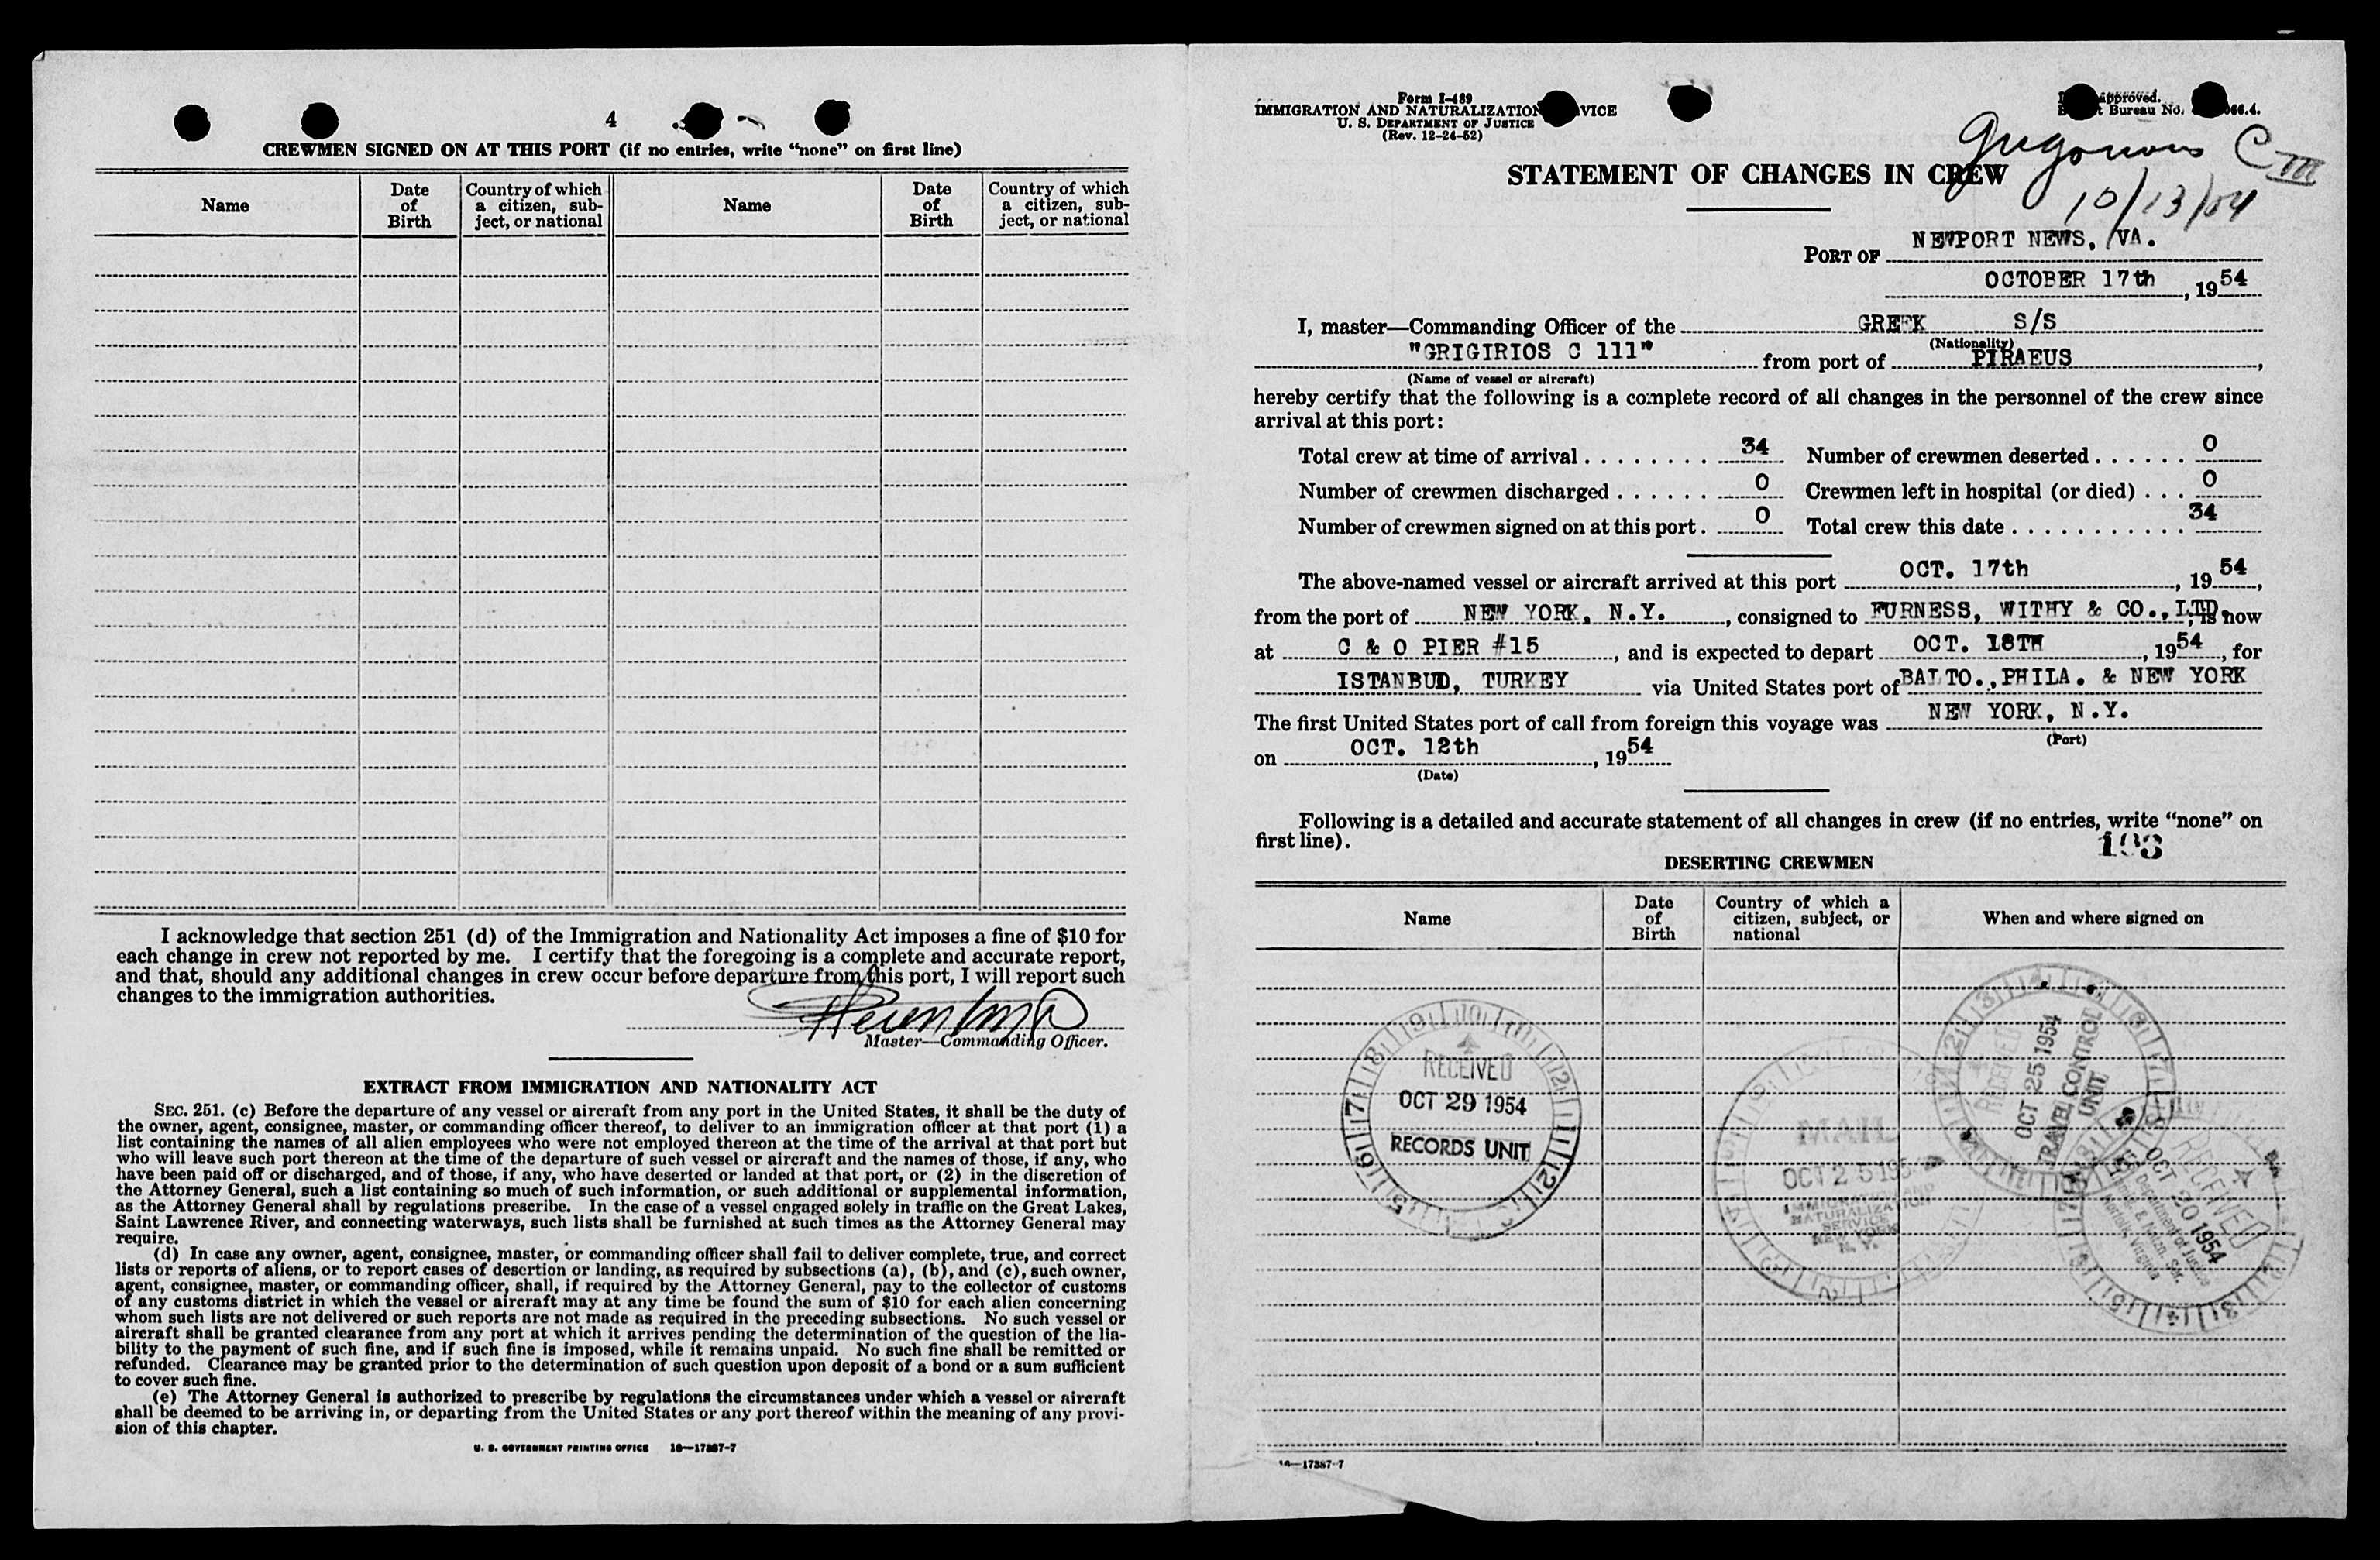 4
CREWMEN SIGNED ON AT THIS PORT (if no entries, write “none” on first line)
Name
Date of Birth
Country of which a citizen, sub-ject, or national
Name
Date of Birth
Country of which a citizen, sub-ject, or national
I acknowledge that section 251 (d) of the Immigration and Nationality Act imposes a fine of $10 for
each change in crew not reported by me. I certify that the foregoing is a complete and accurate report,
and that, should any additional changes in crew occur before departure from this port, I will report such
changes to the immigration authorities.
Master—Commanding Officer.
EXTRACT FROM IMMIGRATION AND NATIONALITY ACT
SEC. 251. (c) Before the departure of any vessel or aircraft from any port in the United States, it shall be the duty of
the owner, agent, consignee, master, or commanding officer thereof, to deliver to an immigration officer at that port (1) a
list containing the names of all alien employees who were not employed thereon at the time of the arrival at that port but
who will leave such port thereon at the time of the departure of such vessel or aircraft and the names of those, if any, who
have been paid off or discharged, and of those, if any, who have deserted or landed at that port, or (2) in the discretion of
the Attorney General, such a list containing so much of such information, or such additional or supplemental information,
as the Attorney General shall by regulations prescribe. In the case of a vessel engaged solely in traffic on the Great Lakes,
Saint Lawrence River, and connecting waterways, such lists shall be furnished at such times as the Attorney General may
require.
(d) In case any owner, agent, consignee, master, or commanding officer shall fail to deliver complete, true, and correct
lists or reports of aliens, or to report cases of desertion or landing, as required by subsections (a), (b), and (c), such owner,
agent, consignee, master, or commanding officer, shall, if required by the Attorney General, pay to the collector of customs
of any customs district in which the vessel or aircraft may at any time be found the sum of $10 for each alien concerning
whom such lists are not delivered or such reports are not made as required in the preceding subsections. No such vessel or
aircraft shall be granted clearance from any port at which it arrives pending the determination of the question of the lia-
bility to the payment of such fine, and if such fine is imposed, while it remains unpaid. No such fine shall be remitted or
refunded. Clearance may be granted prior to the determination of such question upon deposit of a bond or a sum sufficient
to cover such fine.
(e) The Attorney General is authorized to prescribe by regulations the circumstances under which a vessel or aircraft
shall be deemed to be arriving in, or departing from the United States or any port thereof within the meaning of any provi-
sion of this chapter.
U. S. GOVERNMENT PRINTING OFFICE 16—17387-7
Form I-489
IMMIGRATION AND NATURALIZATION VICE
U. S. DEPARTMENT OF JUSTICE
(Rev. 12-24-52)
approved.
Bureau No. 066.4.
C III
10/13/54
STATEMENT OF CHANGES IN CREW
PORT OF NEWPORT NEWS, VA.
OCTOBER 17th, 1954
I, master—Commanding Officer of the GREEK S/S
(Nationality)
"GRIGIRIOS C 111" from port of PIRAEUS,
(Name of vessel or aircraft)
hereby certify that the following is a complete record of all changes in the personnel of the crew since
arrival at this port:
Total crew at time of arrival . . . . . . . . 34 Number of crewmen deserted . . . . . . 0
Number of crewmen discharged . . . . . . 0 Crewmen left in hospital (or died) . . . 0
Number of crewmen signed on at this port . 0 Total crew this date . . . . . . . . . . . 34
The above-named vessel or aircraft arrived at this port OCT. 17th, 1954,
from the port of NEW YORK, N.Y., consigned to FURNESS, WITHY & CO., LTD, is now
at C & O PIER #15, and is expected to depart OCT. 18TH, 1954, for
ISTANBUD, TURKEY via United States port of BALTO., PHILA. & NEW YORK
The first United States port of call from foreign this voyage was NEW YORK, N.Y.
(Port)
on OCT. 12th, 1954
(Date)
Following is a detailed and accurate statement of all changes in crew (if no entries, write “none” on
first line).
DESERTING CREWMEN
Name
Date of Birth
Country of which a citizen, subject, or national
When and where signed on
RECEIVED
OCT 29 1954
RECORDS UNIT
MAIL
OCT 25 195
IMMIGRATION AND
NATURALIZATION
SERVICE
NEW YORK
N. Y.
RECEIVED
OCT 25 1954
TRAVEL CONTROL
UNIT
RECEIVED
OCT 20 1954
Department of Justice
& Natzn. Ser.
Norfolk, Virginia
16—17387-7